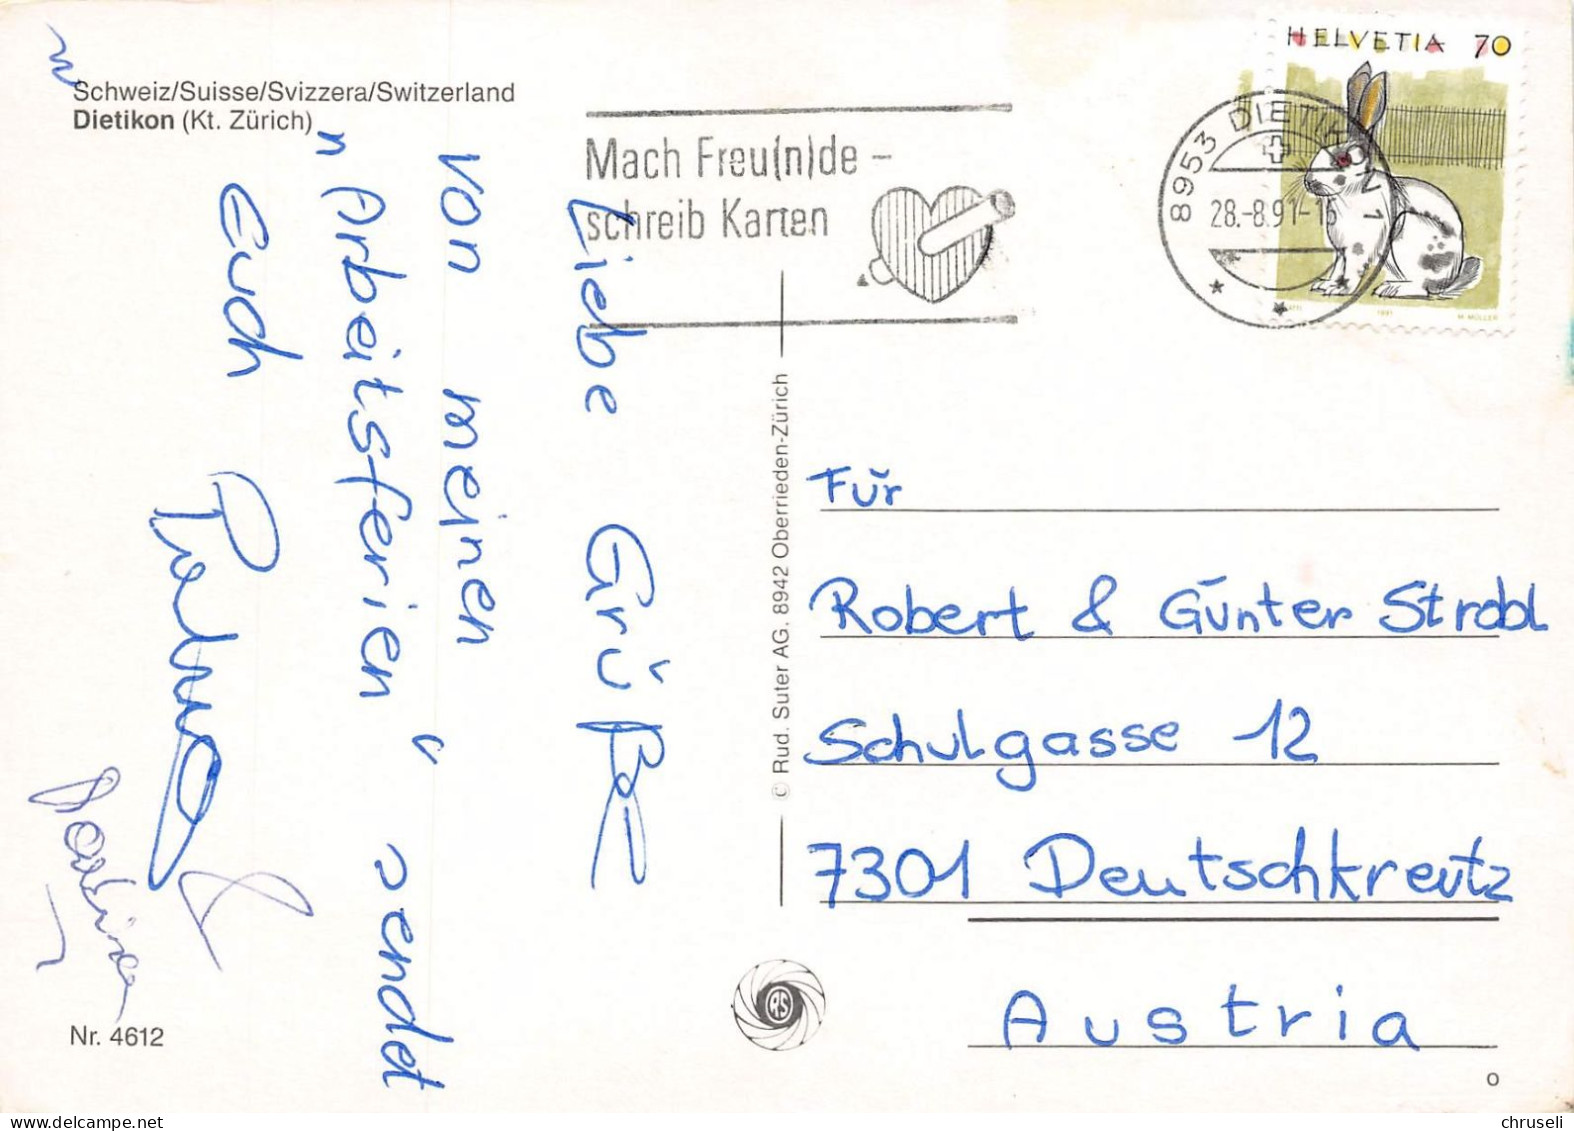 Schweiz/Suisse/Svizzera/Switzerland
Dietikon (Kt. Zürich)
Mach Freu(n)de –
schreib Karten
8953 DIETIKON 1
28.-8.91-16
HELVETIA 70
1991
M. MÜLLER
Liebe Grüße
von meinen
"Arbeitsferien" sendet
Euch
© Rud. Suter AG. 8942 Oberrieden-Zürich
Für
Robert & Günter Strobl
Schulgasse 12
7301 Deutschkreutz
Austria
RS
Nr. 4612
O
chruseli